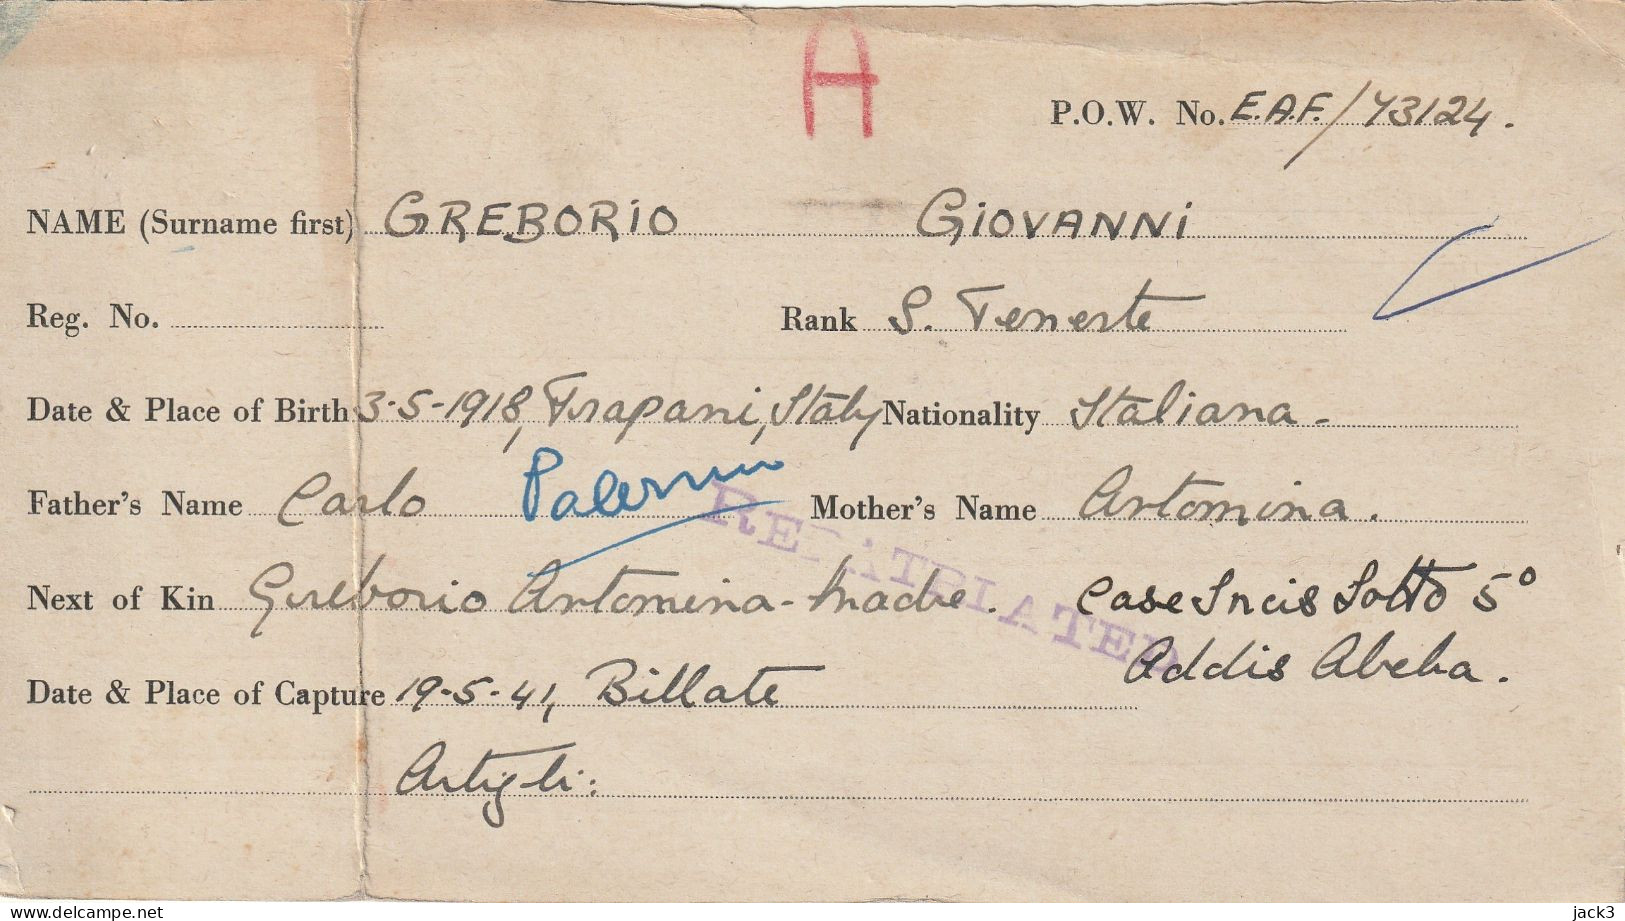 A
P.O.W. No. E.A.F./73124.
NAME (Surname first) GREBORIO GIOVANNI
Reg. No. Rank S. Tenente
Date & Place of Birth 3-5-1918, Trapani, Italy Nationality Italiana.
Father's Name Carlo Palermo Mother's Name Antonina.
REPATRIATED
Next of Kin Greborio Antonina - Madre. Case Incis Lotto 5°
Addis Abeba.
Date & Place of Capture 19-5-41, Billate
Artigli:
www.delcampe.net
jack3